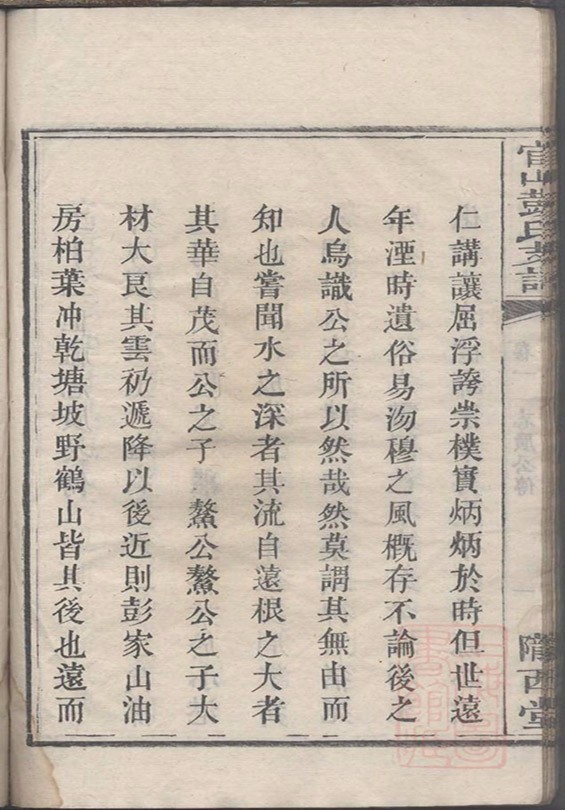 官山彭氏支譜
卷一 老展公傳 一
隴西堂
仁講讓屈浮誇崇樸實炳炳於時但世遠
年湮時遺俗易沕穆之風概存不論後之
人烏識公之所以然哉然莫謂其無由而
知也嘗聞水之深者其流自遠根之大者
其華自茂而公之子 鰲公鰲公之子大
材大艮其雲礽遞降以後近則彭家山油
房柏葉冲乾塘坡野鶴山皆其後也遠而